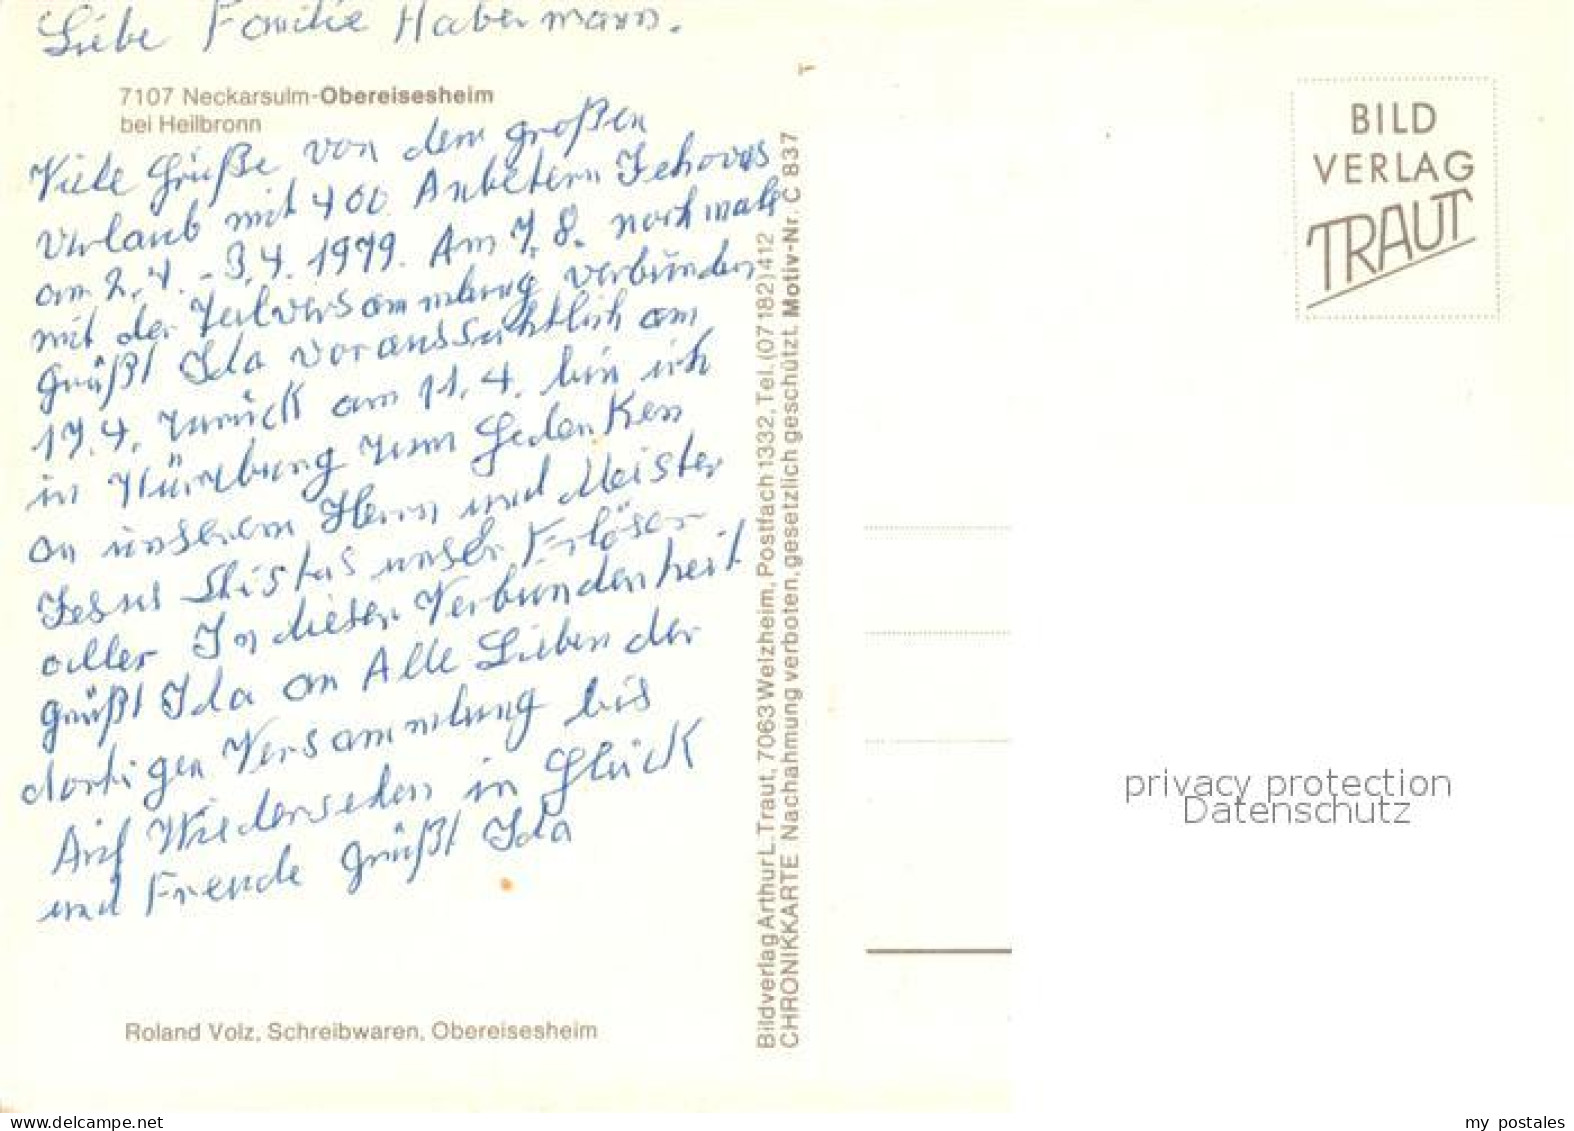 Liebe Familie Habermann.
7107 Neckarsulm-Obereisesheim
bei Heilbronn
Viele Grüße von dem großen
Urlaub mit 400 Anbetern Jehovas
am 2.4. - 3.4. 1979. Am 7.8. nochmals
mit der Teilversammlung verbunden
grüßt Ida voraussichtlich am
17.4. zurück am 11.4. bin ich
in Nürnburg zum Gedenken
an unserem Herrn und Meister
Jesus unser Erlöser
aller In dieser Verbundenheit
grüßt Ida an Alle Lieben der
dortigen Versammlung bis
Auf Wiedersehen in Glück
und Freude grüßt Ida
Roland Volz, Schreibwaren, Obereisesheim
Bildverlag Arthur L. Traut, 7063 Welzheim, Postfach 1332, Tel. (07182) 412
CHRONIKKARTE Nachahmung verboten, gesetzlich geschützt. Motiv-Nr. C 837
T
BILD
VERLAG
TRAUT
privacy protection
Datenschutz
www.delcampe.net
my postales